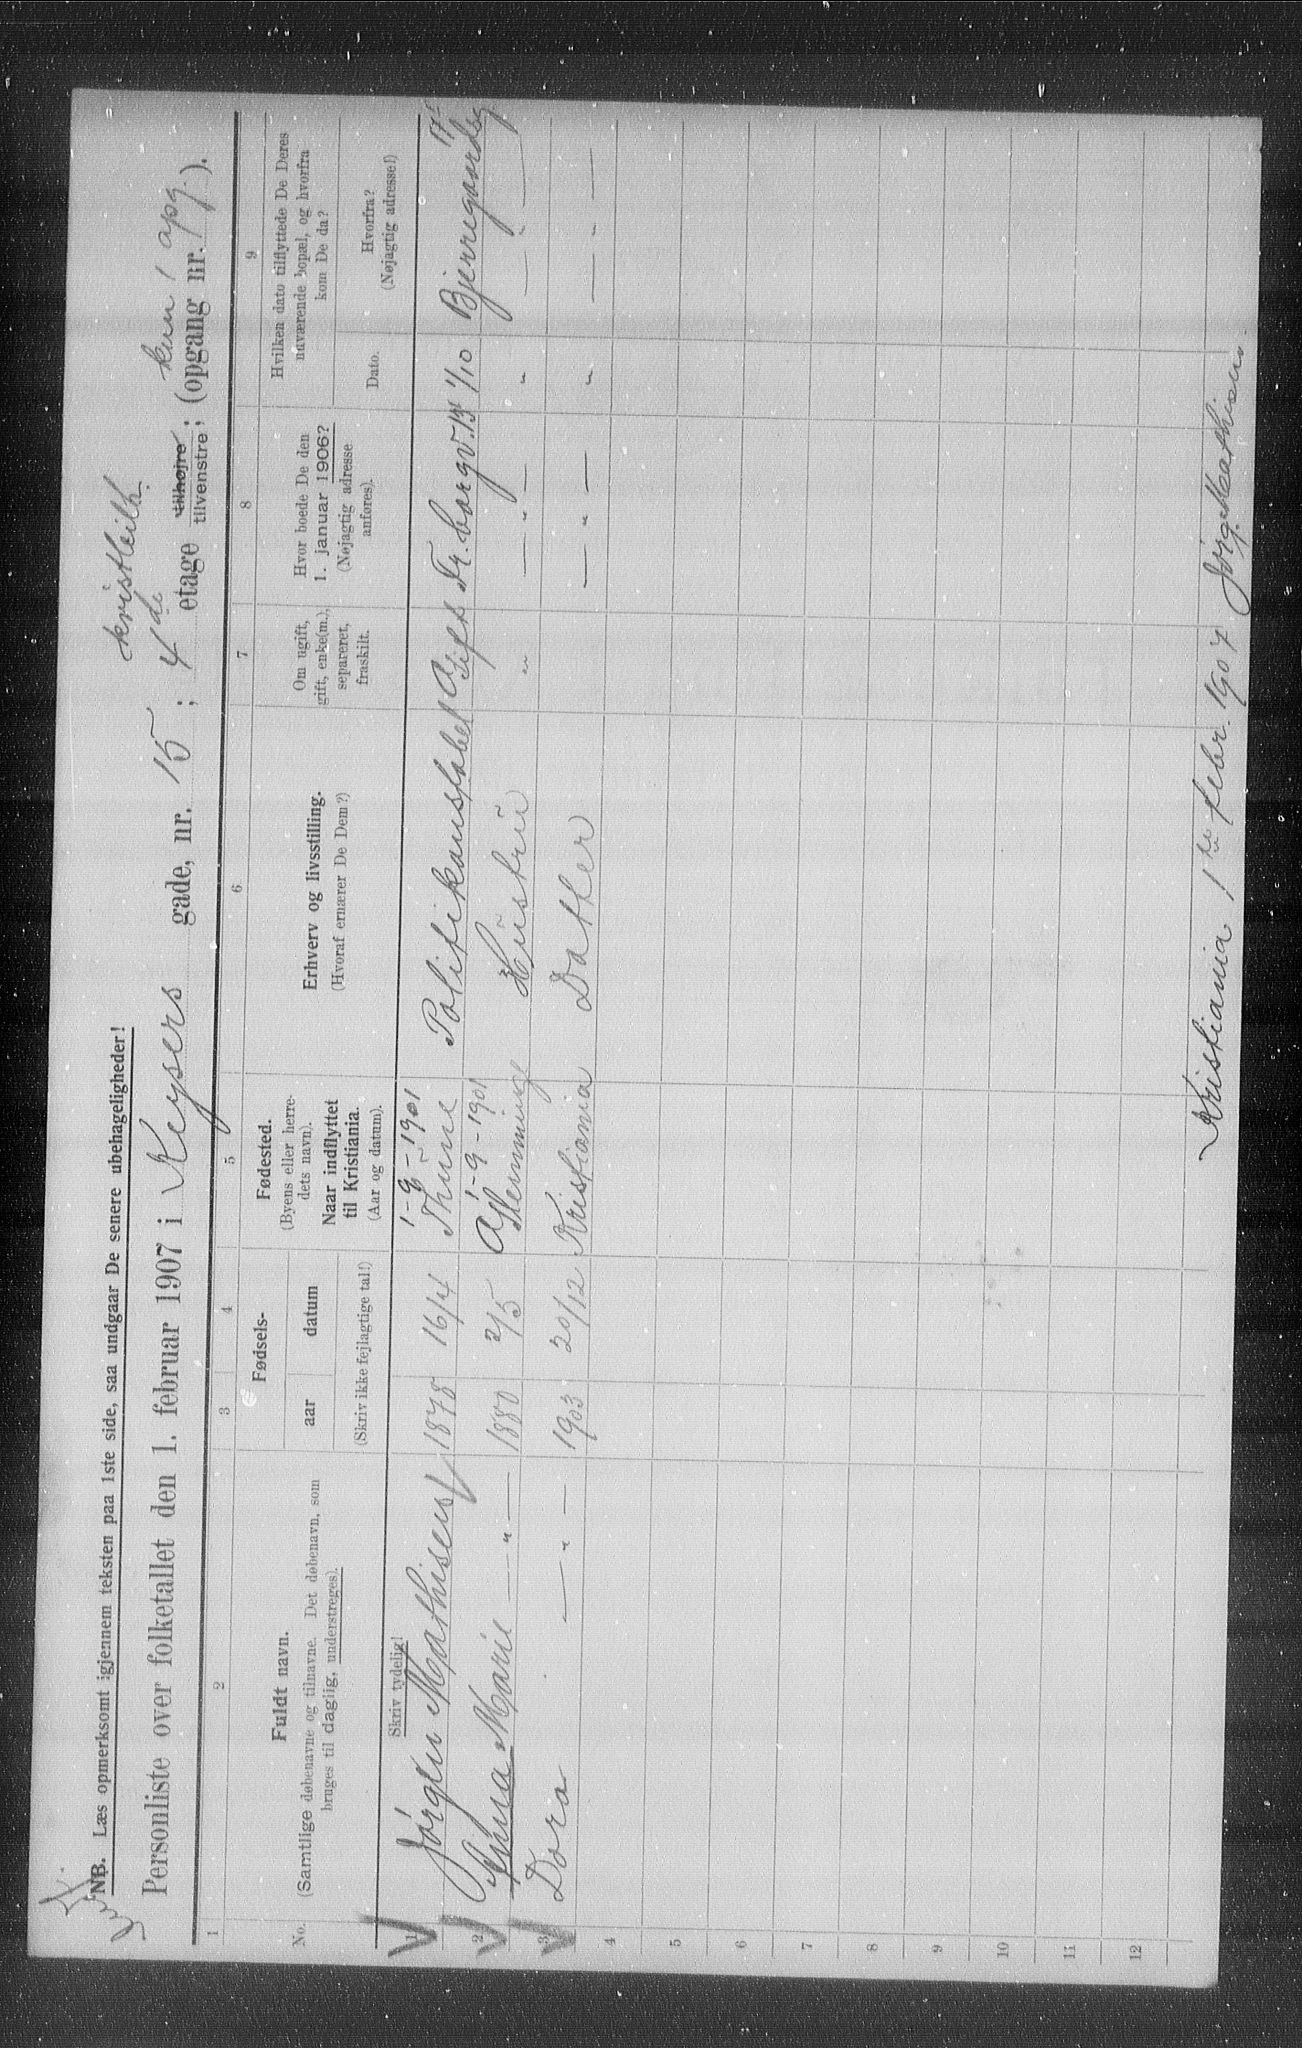 NB. Læs opmerksomt igjennem teksten paa 1ste side, saa undgaar De senere ubehageligheder!
Personliste over folketallet den 1. februar 1907 i Keysers gade, nr. 15; 4de etage tilhøjre tilvenstre; (opgang nr. kun 1 opg.).
1 2 3 4 5 6 7 8 9
No.
Fuldt navn.
(Samtlige døbenavne og tilnavne. Det døbenavn, som
bruges til daglig, understreges).
Fødsels-
aar datum
Fødested.
(Byens eller herre-
dets navn).
Naar indflyttet
til Kristiania.
(Aar og datum).
Erhverv og livsstilling.
(Hvoraf ernærer De Dem?)
Om ugift,
gift, enke(m.),
separeret,
fraskilt.
Hvor boede De den
1. januar 1906?
(Nøjagtig adresse
anføres).
Hvilken dato tilflyttede De Deres
nuværende bopæl, og hvorfra
kom De da?
Dato.
Hvorfra?
(Nøjagtig adresse!)
Skriv tydelig!
(Skriv ikke fejlagtige tal!)
1-9-1901
1 Jörgen Mathisen 1878 16/4 Politikonstabel Gift 1/10
1-9-1901
2 Marie —"— 1880 2/5 Hüstrü " —"— " —"—
3 Dora —"— 1903 20/12 Kristiania Datter —"— " —"—
4
5
6
7
8
9
10
11
12
Kristiania 1ste febr. 1907 Jörg. Mathisen